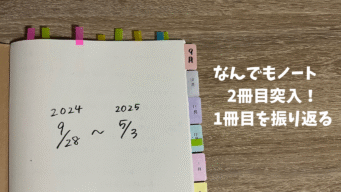 2024 2025
9/28 ~ 5/3
9月
なんでもノート
2冊目突入！
1冊目を振り返る